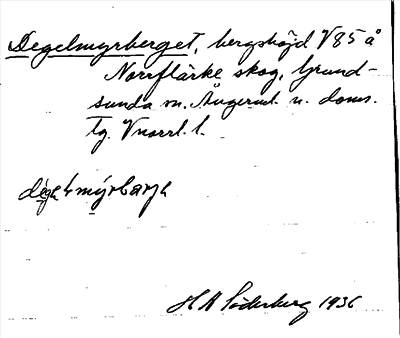 Degelmyrberget, bergshöjd V85 å
Norrflärke skog, Grund-
sunda sn. Ångerml. n. doms.
tg. Vnorrl. l.
H A Söderberg 1936